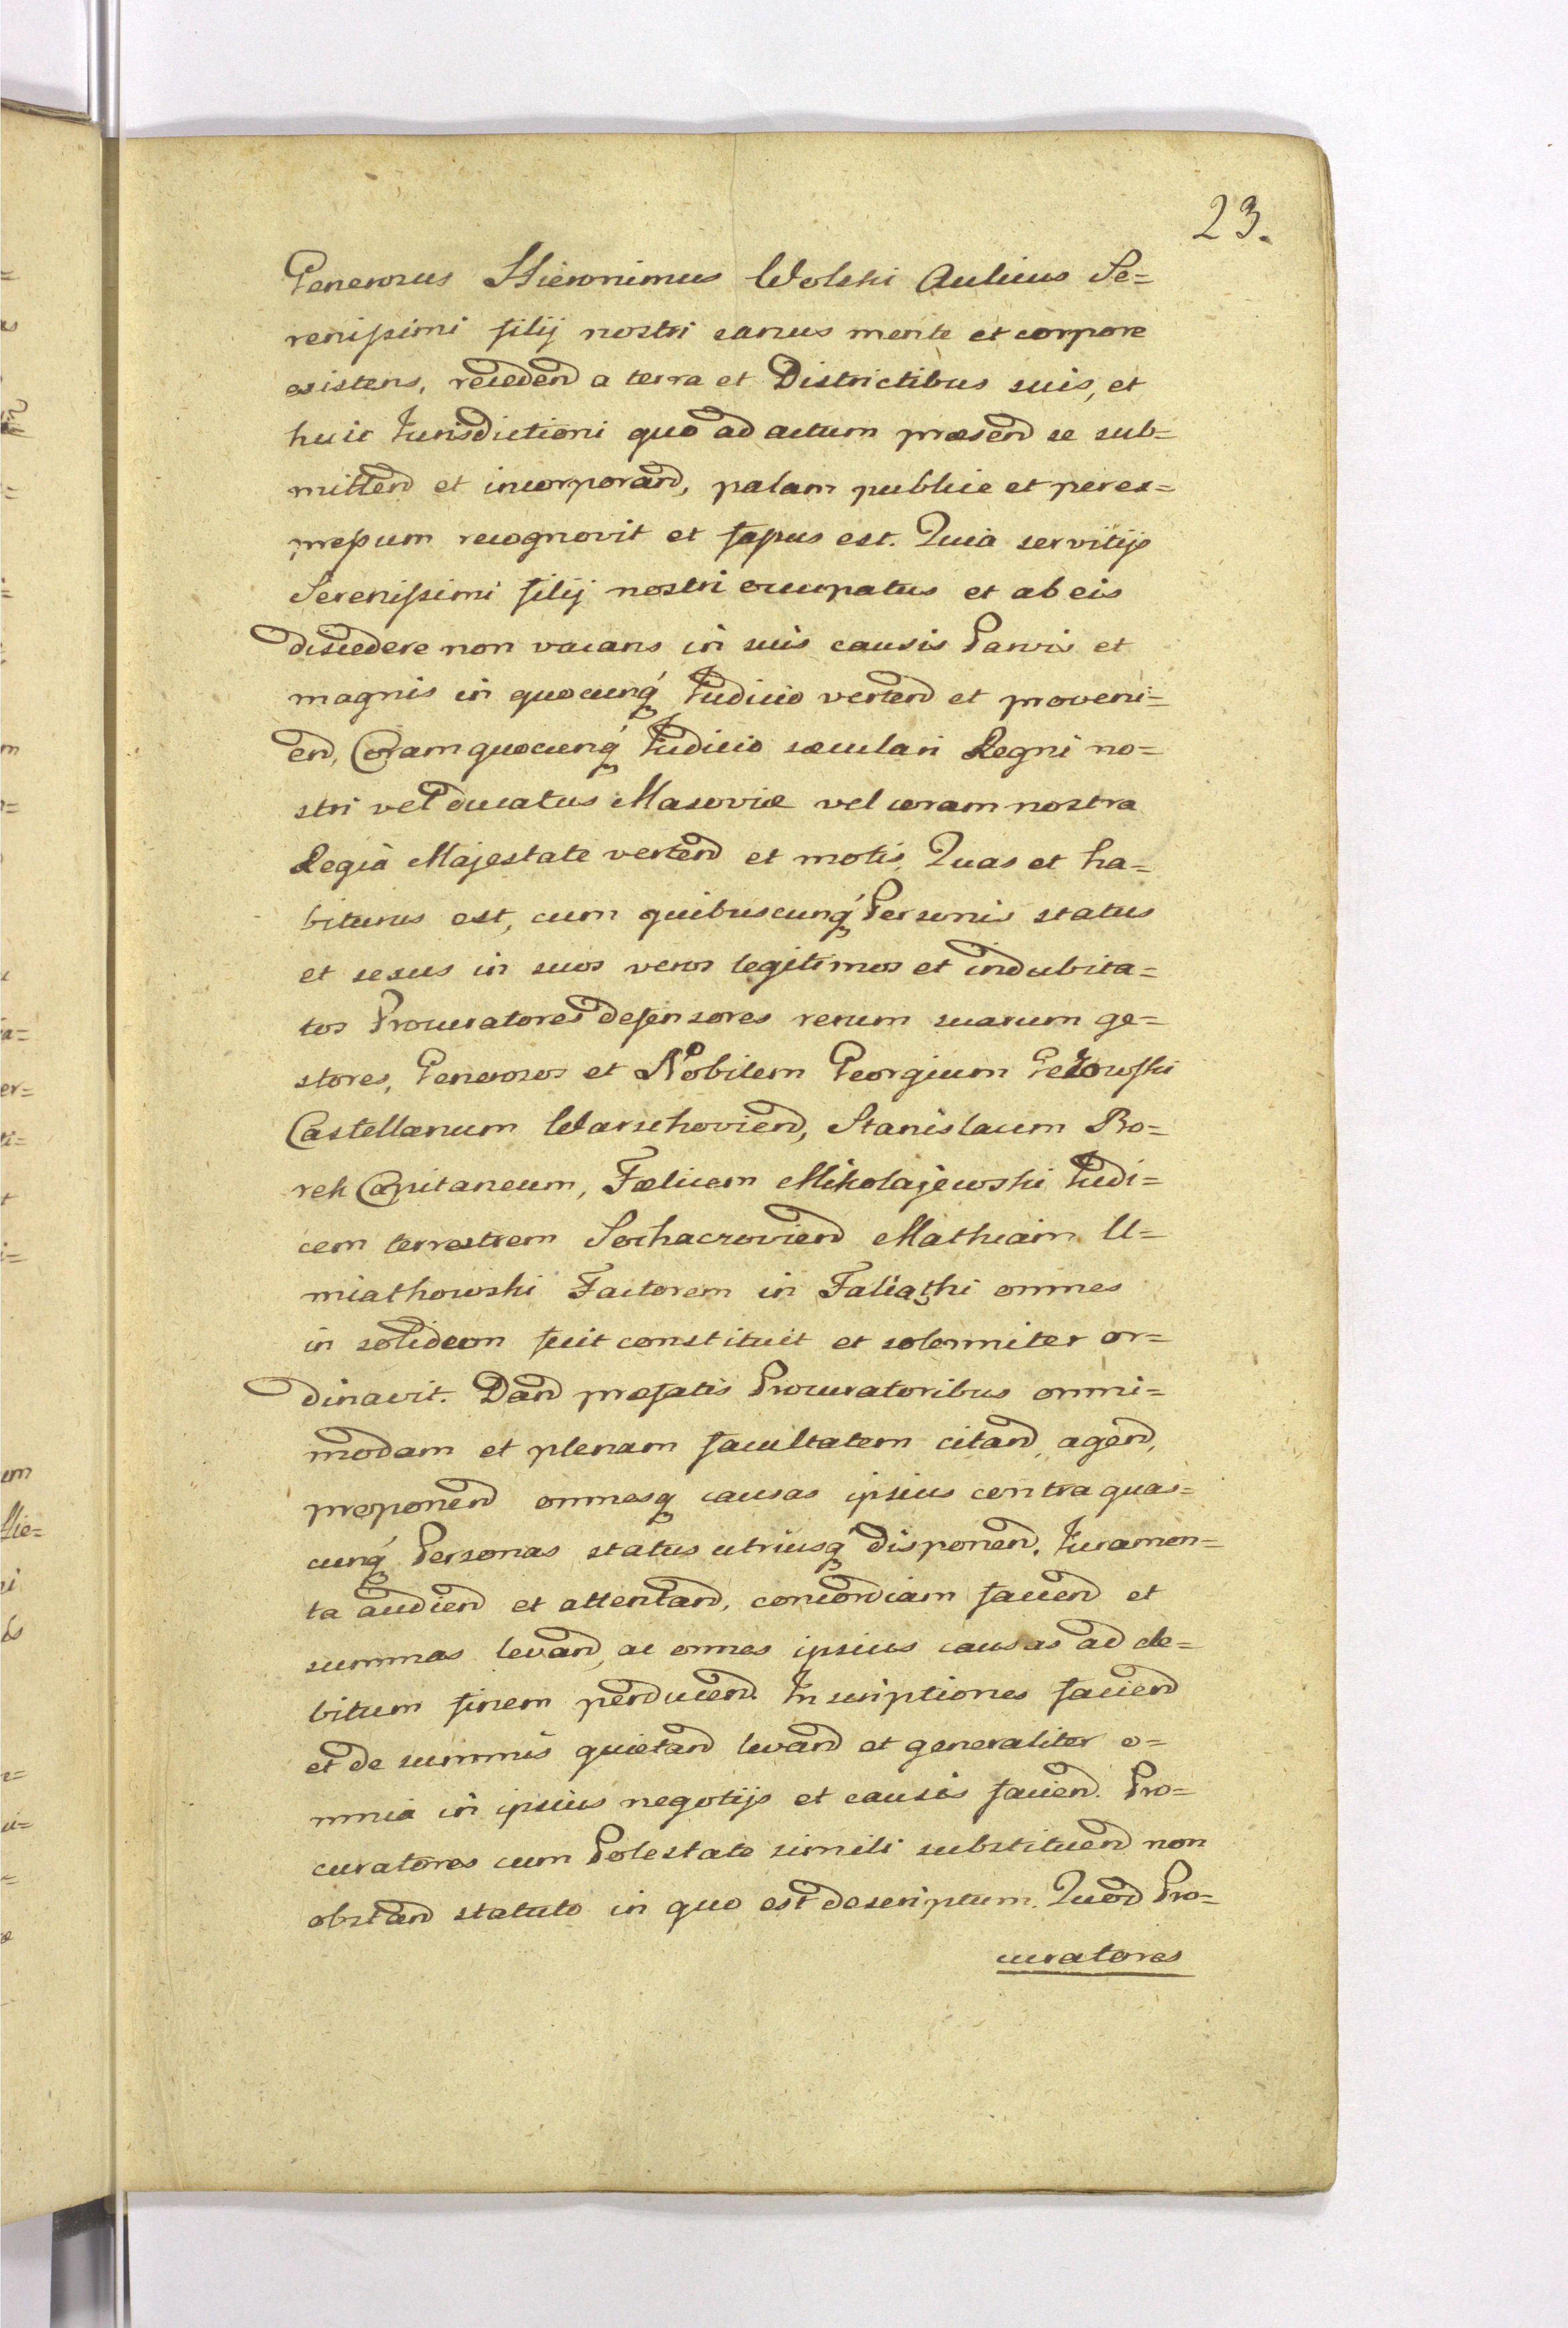 23.
Generosus Hieronimus Wolski Aulicus Se=
renissimi filij nostri sanus mente et corpore
existens, recedend a terra et Districtibus suis, et
huic Jurisdictioni quo ad actum præsend se sub=
mittend et incorporand, palam publice et perex=
pressum recognovit et fassus est. Quia servitijs
Serenissimi filij nostri occupatus et ab eis
discedere non vacans in suis causis Parvis et
magnis in quocunq́ Judicio vertend et proveni=
end, Coram quocunq́ Judicio sæculari Regni no=
stri vel ducatus Masoviæ vel coram nostra
Regia Majestate vertend et motis. Quas et ha=
biturus est, cum quibuscunq́ Personis status
et sexus in suos veros legitimos et indubita=
tos Procuratores defensores rerum suarum ge=
stores, Generosos et Nobilem Georgium
Castellanum Warschoviend, Stanislaum Bo=
rek Capitaneum, Fælicem Mikolajewski Judi=
cem terrestrem Sochaczoviend Mathiam U=
miathowski Factorem in omnes
in solidum fecit constituit et solemniter or=
dinavit. Dand præfatis Procuratoribus omni=
modam et plenam facultatem citand, agend,
proponend omnesq causas ipsius contra quas=
cunq́ Personas status utriusq́ disponend. Juramen=
ta audiend et attentand, concordiam faciend et
summas levand, ac omnes ipsius causas ad de=
bitum finem perducend. Inscriptiones faciend
et de summis quietand levand et generaliter o=
mnia in ipsius negotijs et causis faciend. Pro=
curatores cum Potestate simili substituend non
obstand statuto in quo est descriptum. Quod Pro=
curatores